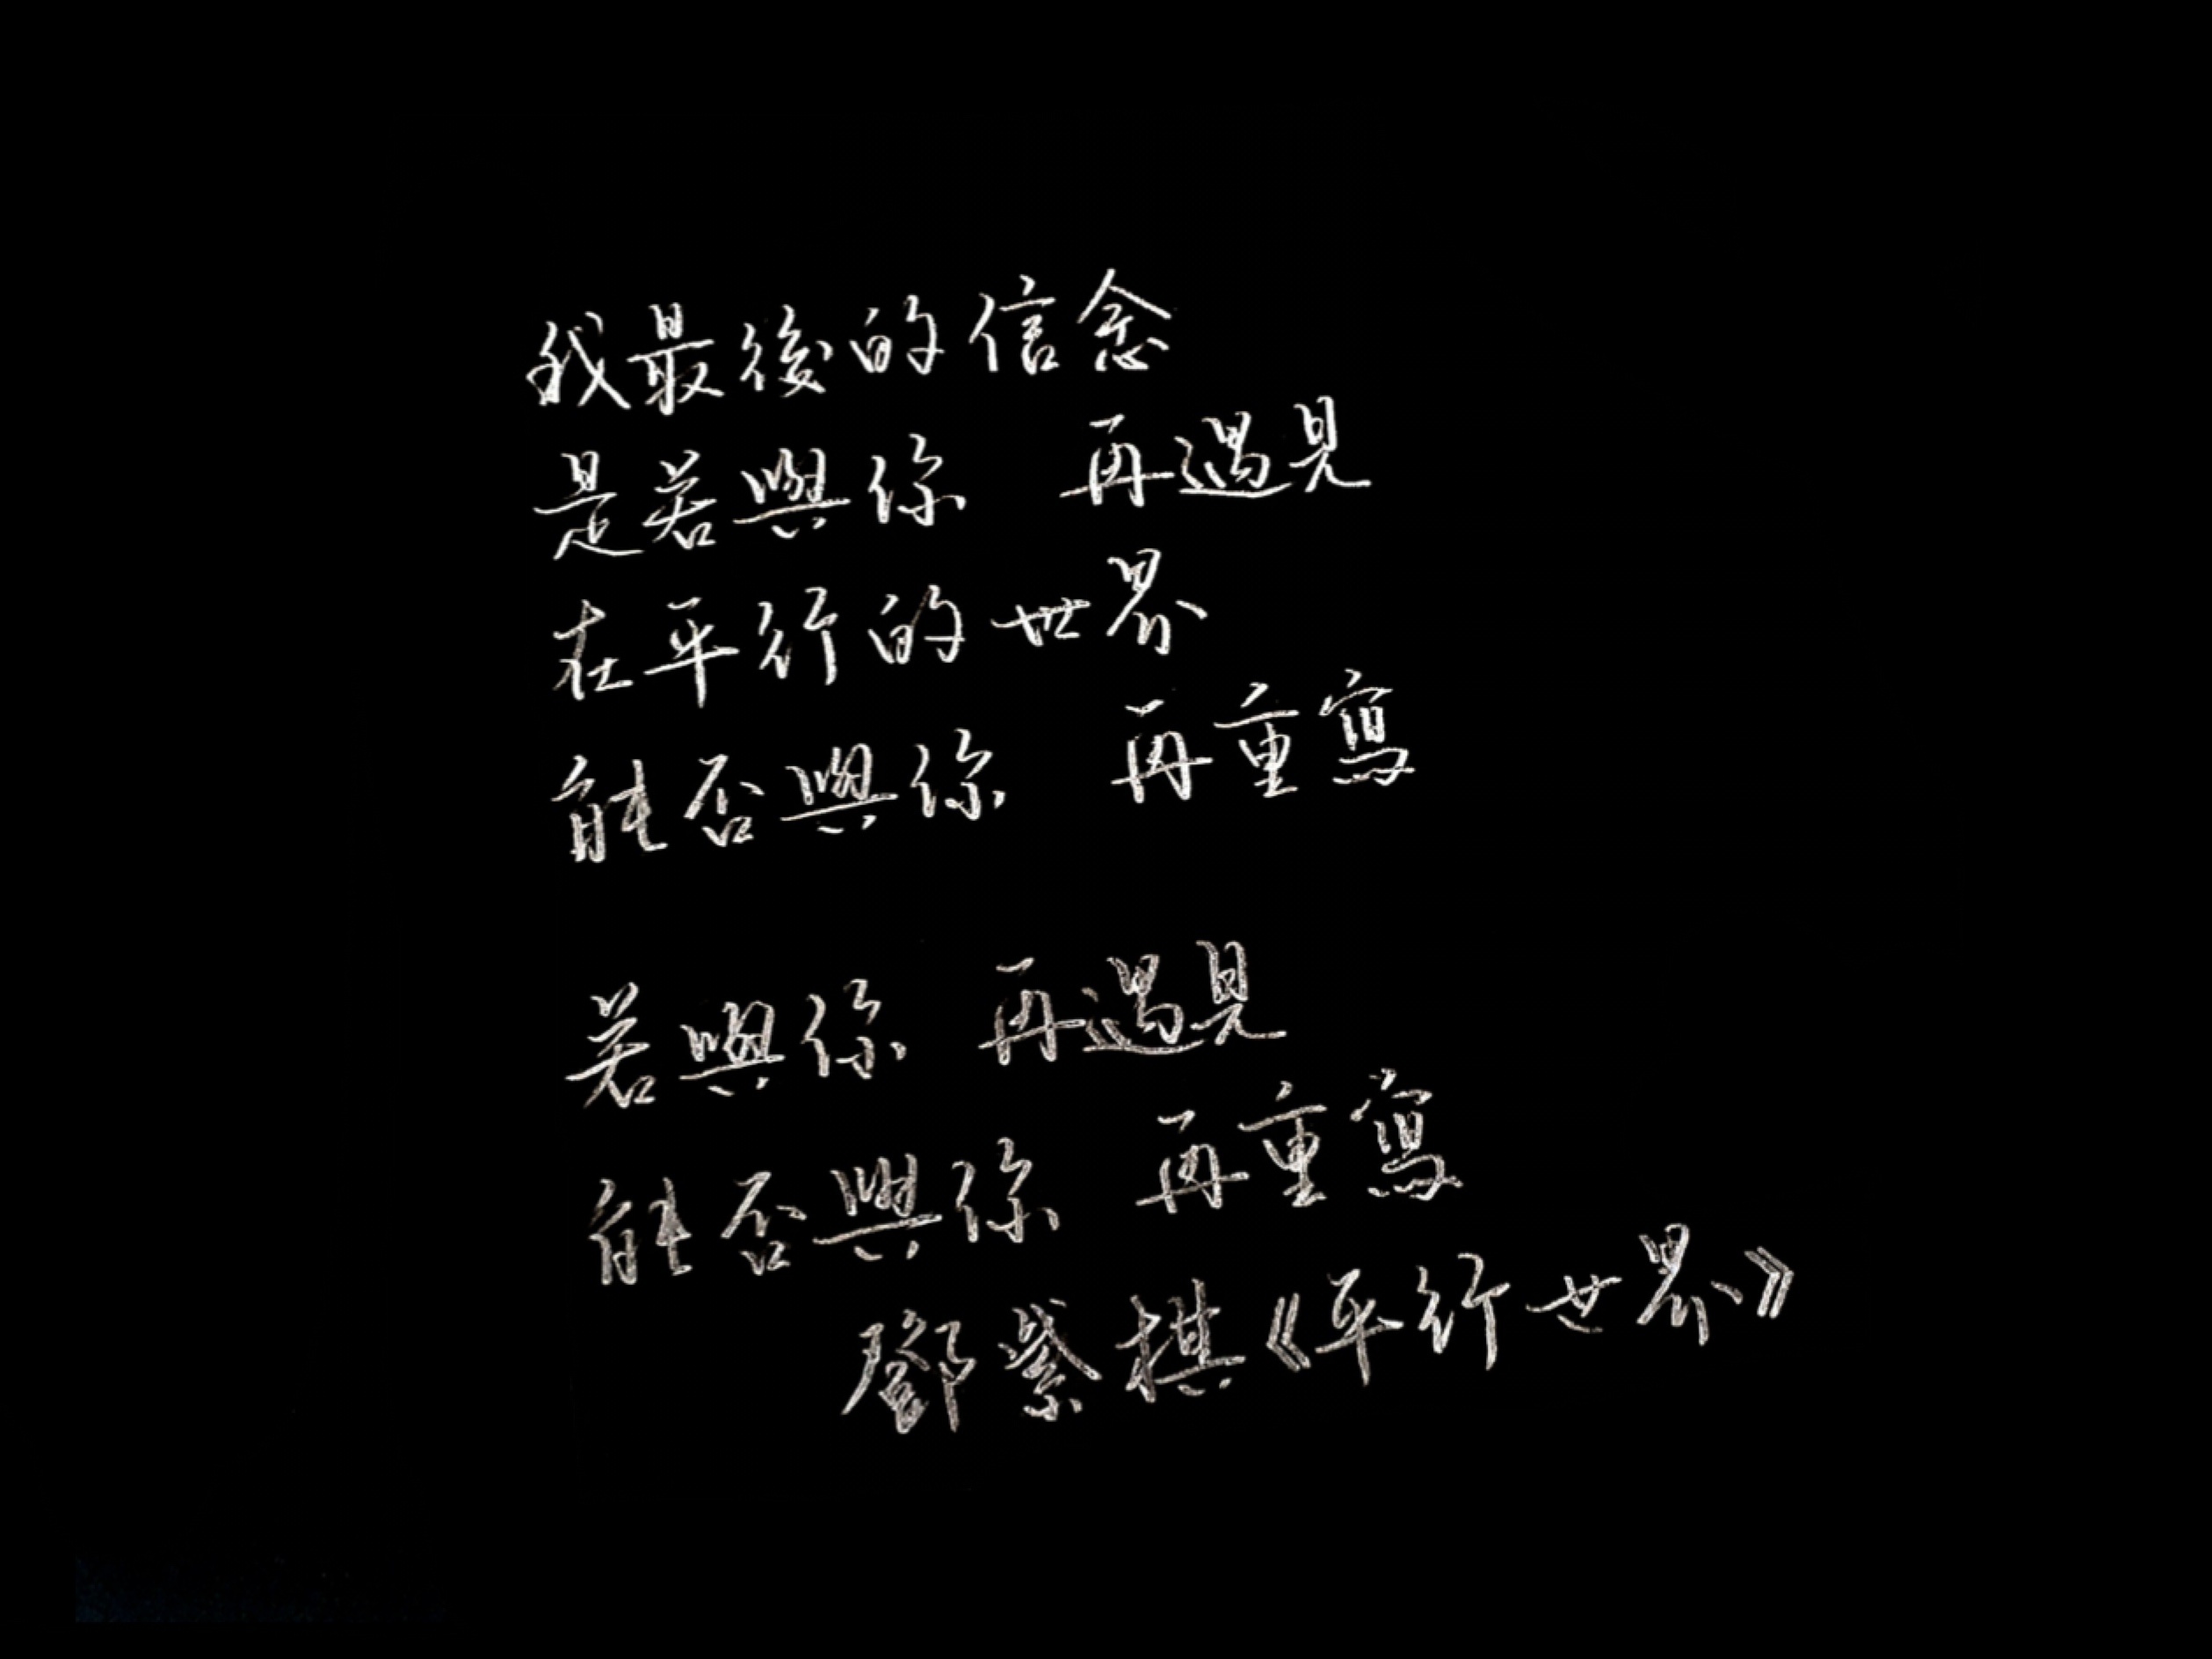 我最後的信念
是若與你 再遇見
在平行的世界
能否與你 再重寫
若與你 再遇見
能否與你 再重寫
鄧紫棋《平行世界》